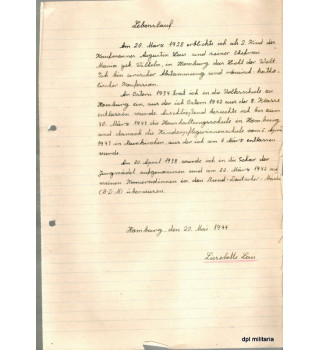 Lebenslauf.
Am 20. März 1928 erblickte ich als 2. Kind des
Kaufmannes Augustin Lau und seiner Ehefrau
Maria geb. in Homburg das Licht der Welt.
Ich bin arischer Abstammung und römisch-katho-
lischer Konfession.
An Ostern 1934 trat ich in die Volksschule zu
Homburg ein, aus der ich Ostern 1942 aus der 8. Klasse
entlassen wurde. Anschließend besuchte ich bis zum
30. März 1943 die Haushaltungsschule in Homburg
und danach die Kinderpflegerinnenschule vom 5. April
1943 in Neunkirchen aus der ich am entlassen
wurde.
Am 20. April 1938 wurde ich in die Schar der
Jungmädel aufgenommen und am 22. März 1942 mit
meinen Kameradinnen in den Bund-Deutscher-Mädel
(B.D.M) überwiesen.
Homburg, den 20. Mai 1944
Lieselotte Lau
dpl militaria